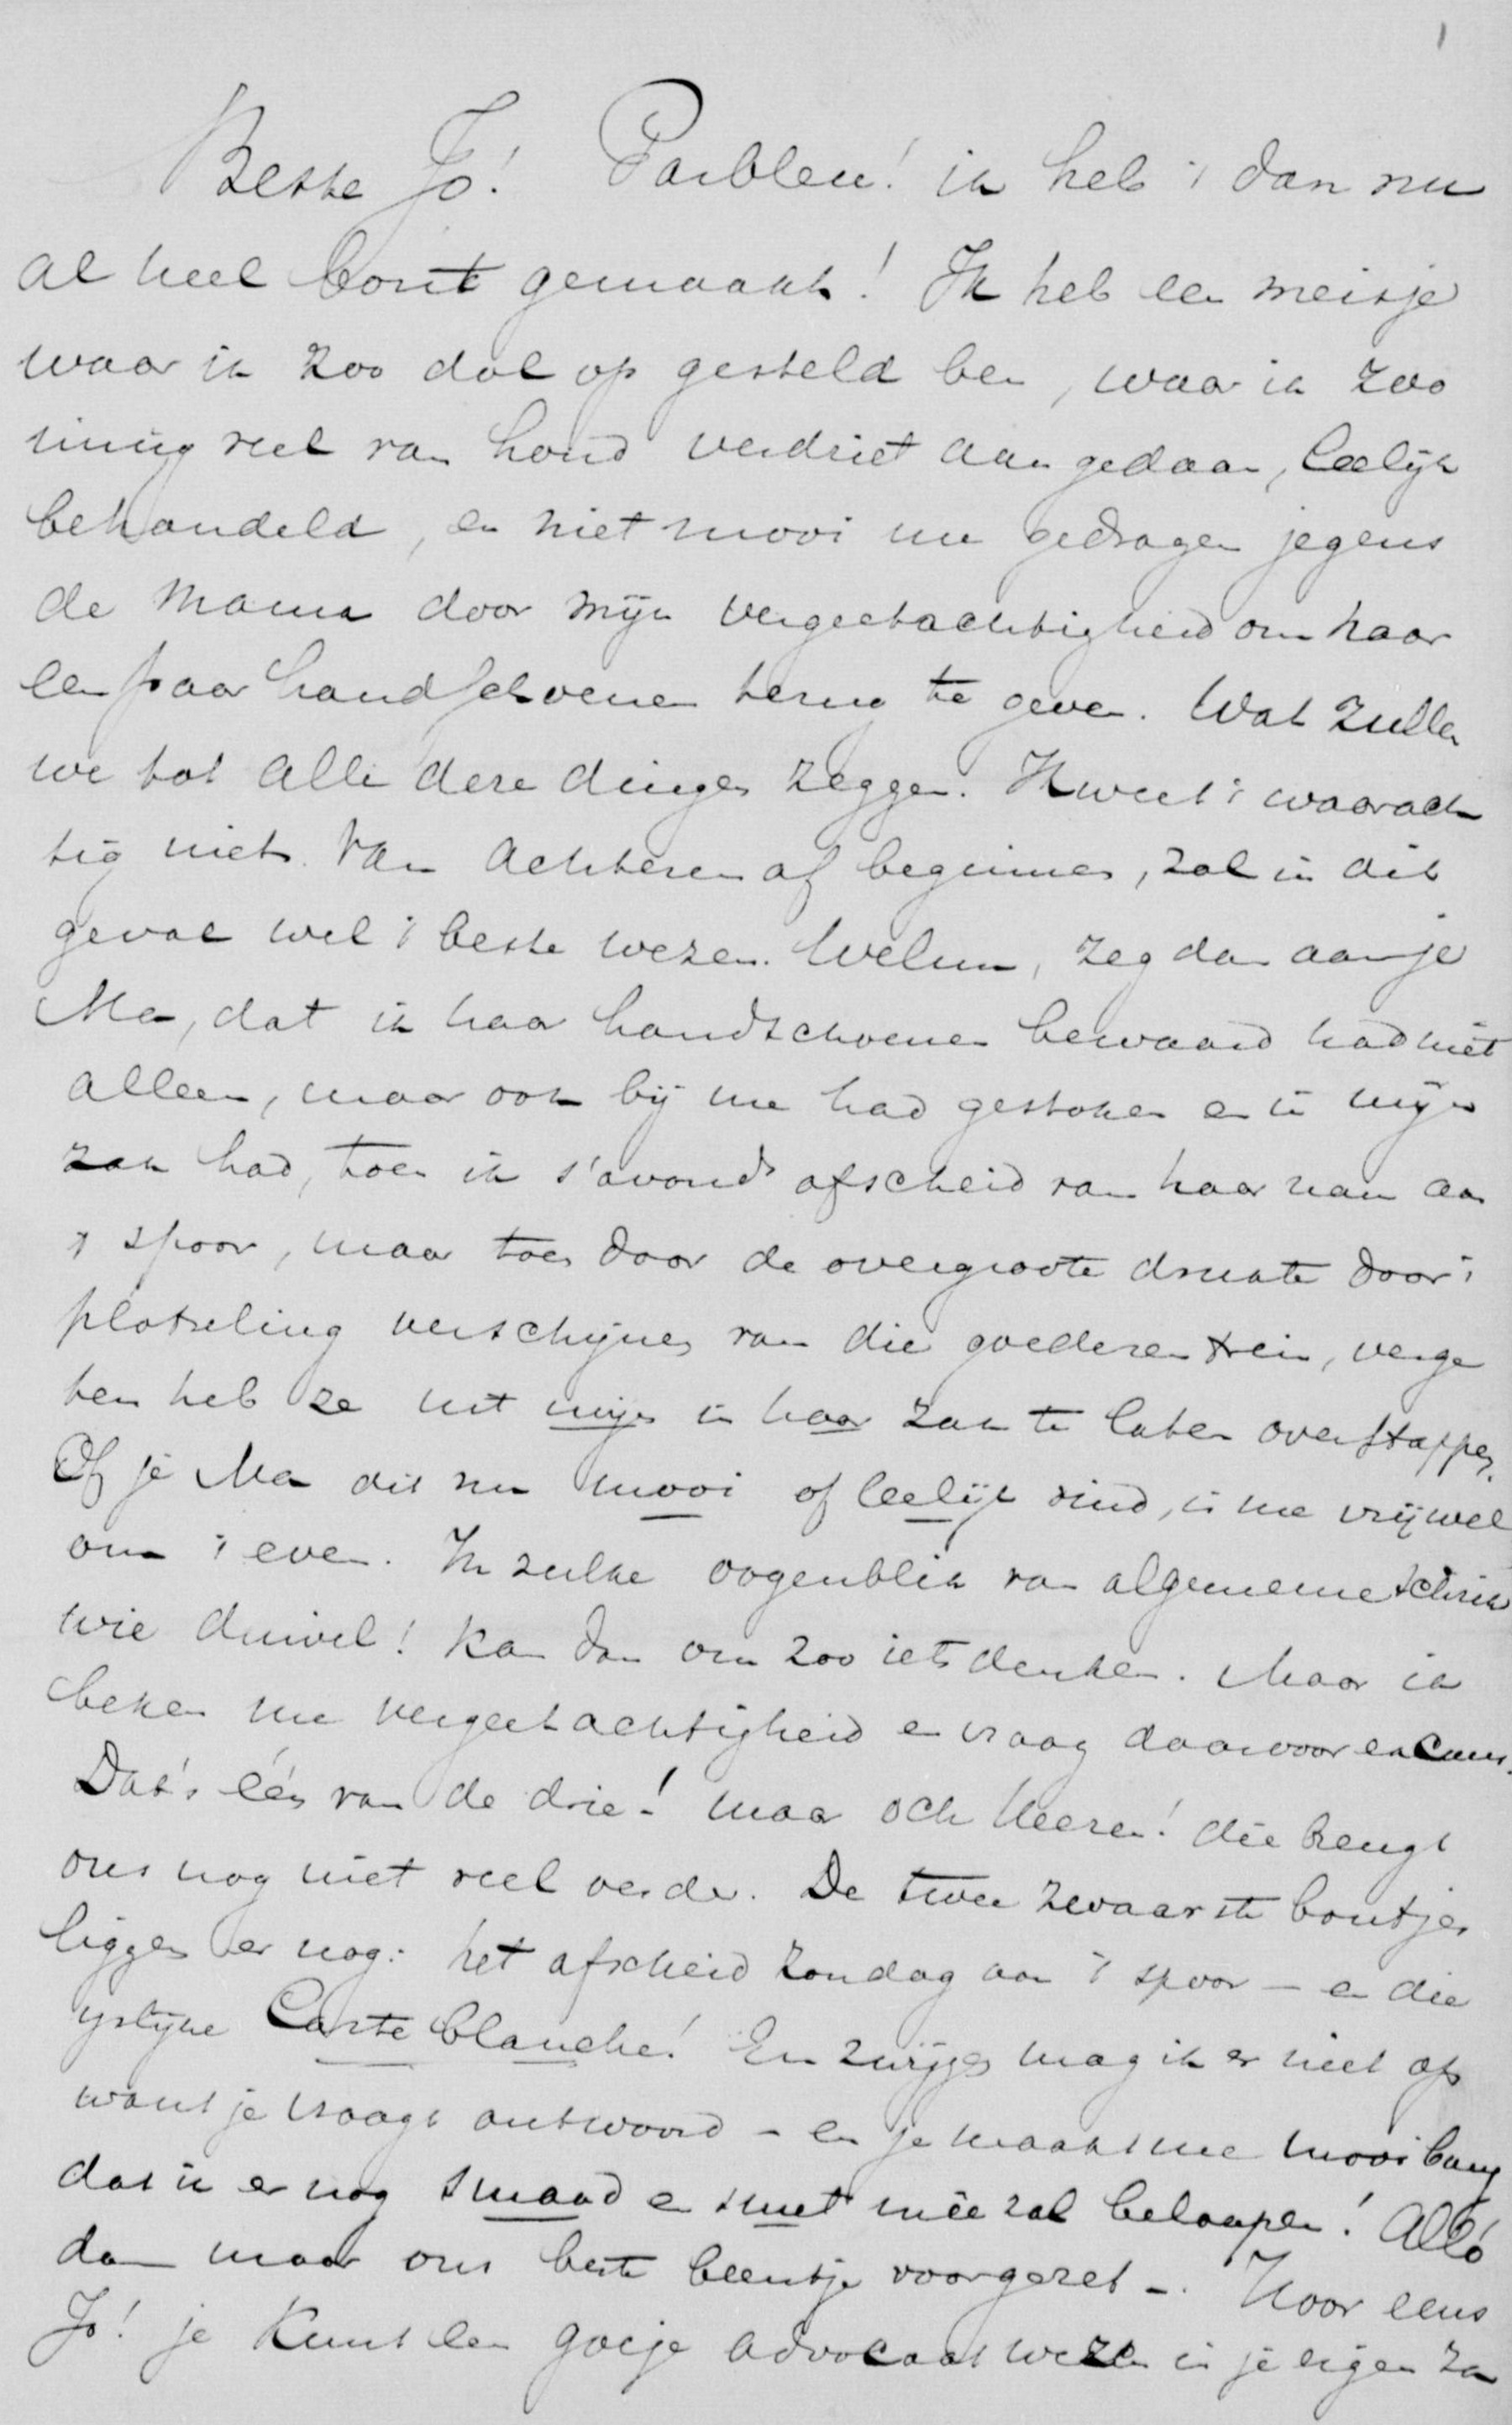 1
Beste Jo! Parbleu! ik heb 't dan nu
al heel bont gemaakt! Ik heb een meisje
waar ik zoo dol op gesteld ben, waar ik zoo
innig veel van houd verdriet aangedaan, leelijk
behandeld, en niet mooi me gedragen jegens
de Mama door mijn vergeetachtigheid om haar
een paar handschoenen terug te geven. Wat zullen
we tot alle deze dingen zeggen. Ik weet 't waarach
tig niet. Van achteren af beginnen, zal in dit
geval wel 't beste wezen. Welnu, zeg dan aan je
Ma, dat ik haar handschoenen bewaard had niet
alleen, maar ook bij me had gestoken en in mijn
zak had, toen ik s'avonds afscheid van haar nam aan
't spoor, maar toen door de overgroote drukte door 't
plotseling verschijnen van die goederentrein, verge
ten heb ze uit mijn in haar zak te laten overstappen.
Of je Ma dit nu mooi of leelijk vind, is me vrijwel
om 't even. In zulke oogenblik van algemeene schrik
wie duivel! kan dan om zoo iets denken. Maar ik
beken me vergeetachtigheid en vraag daarvoor excuus.
Dat's één van de drie! maar och Heere! die brengt
ons nog niet veel verder. De twee zwaarste boutjes
liggen er nog: het afscheid Zondag aan 't spoor – en die
yslijke Carte blanche! En zwijgen mag ik er niet op
want je vraagt antwoord – en je maakt me mooi bang
dat ik er nog smaad en smet mêe zal beloopen! Alló
dan maar ons beste beentje voorgezet –. Hoor eens
Jo! je kunt een goeje advocaat wezen in je eigen za